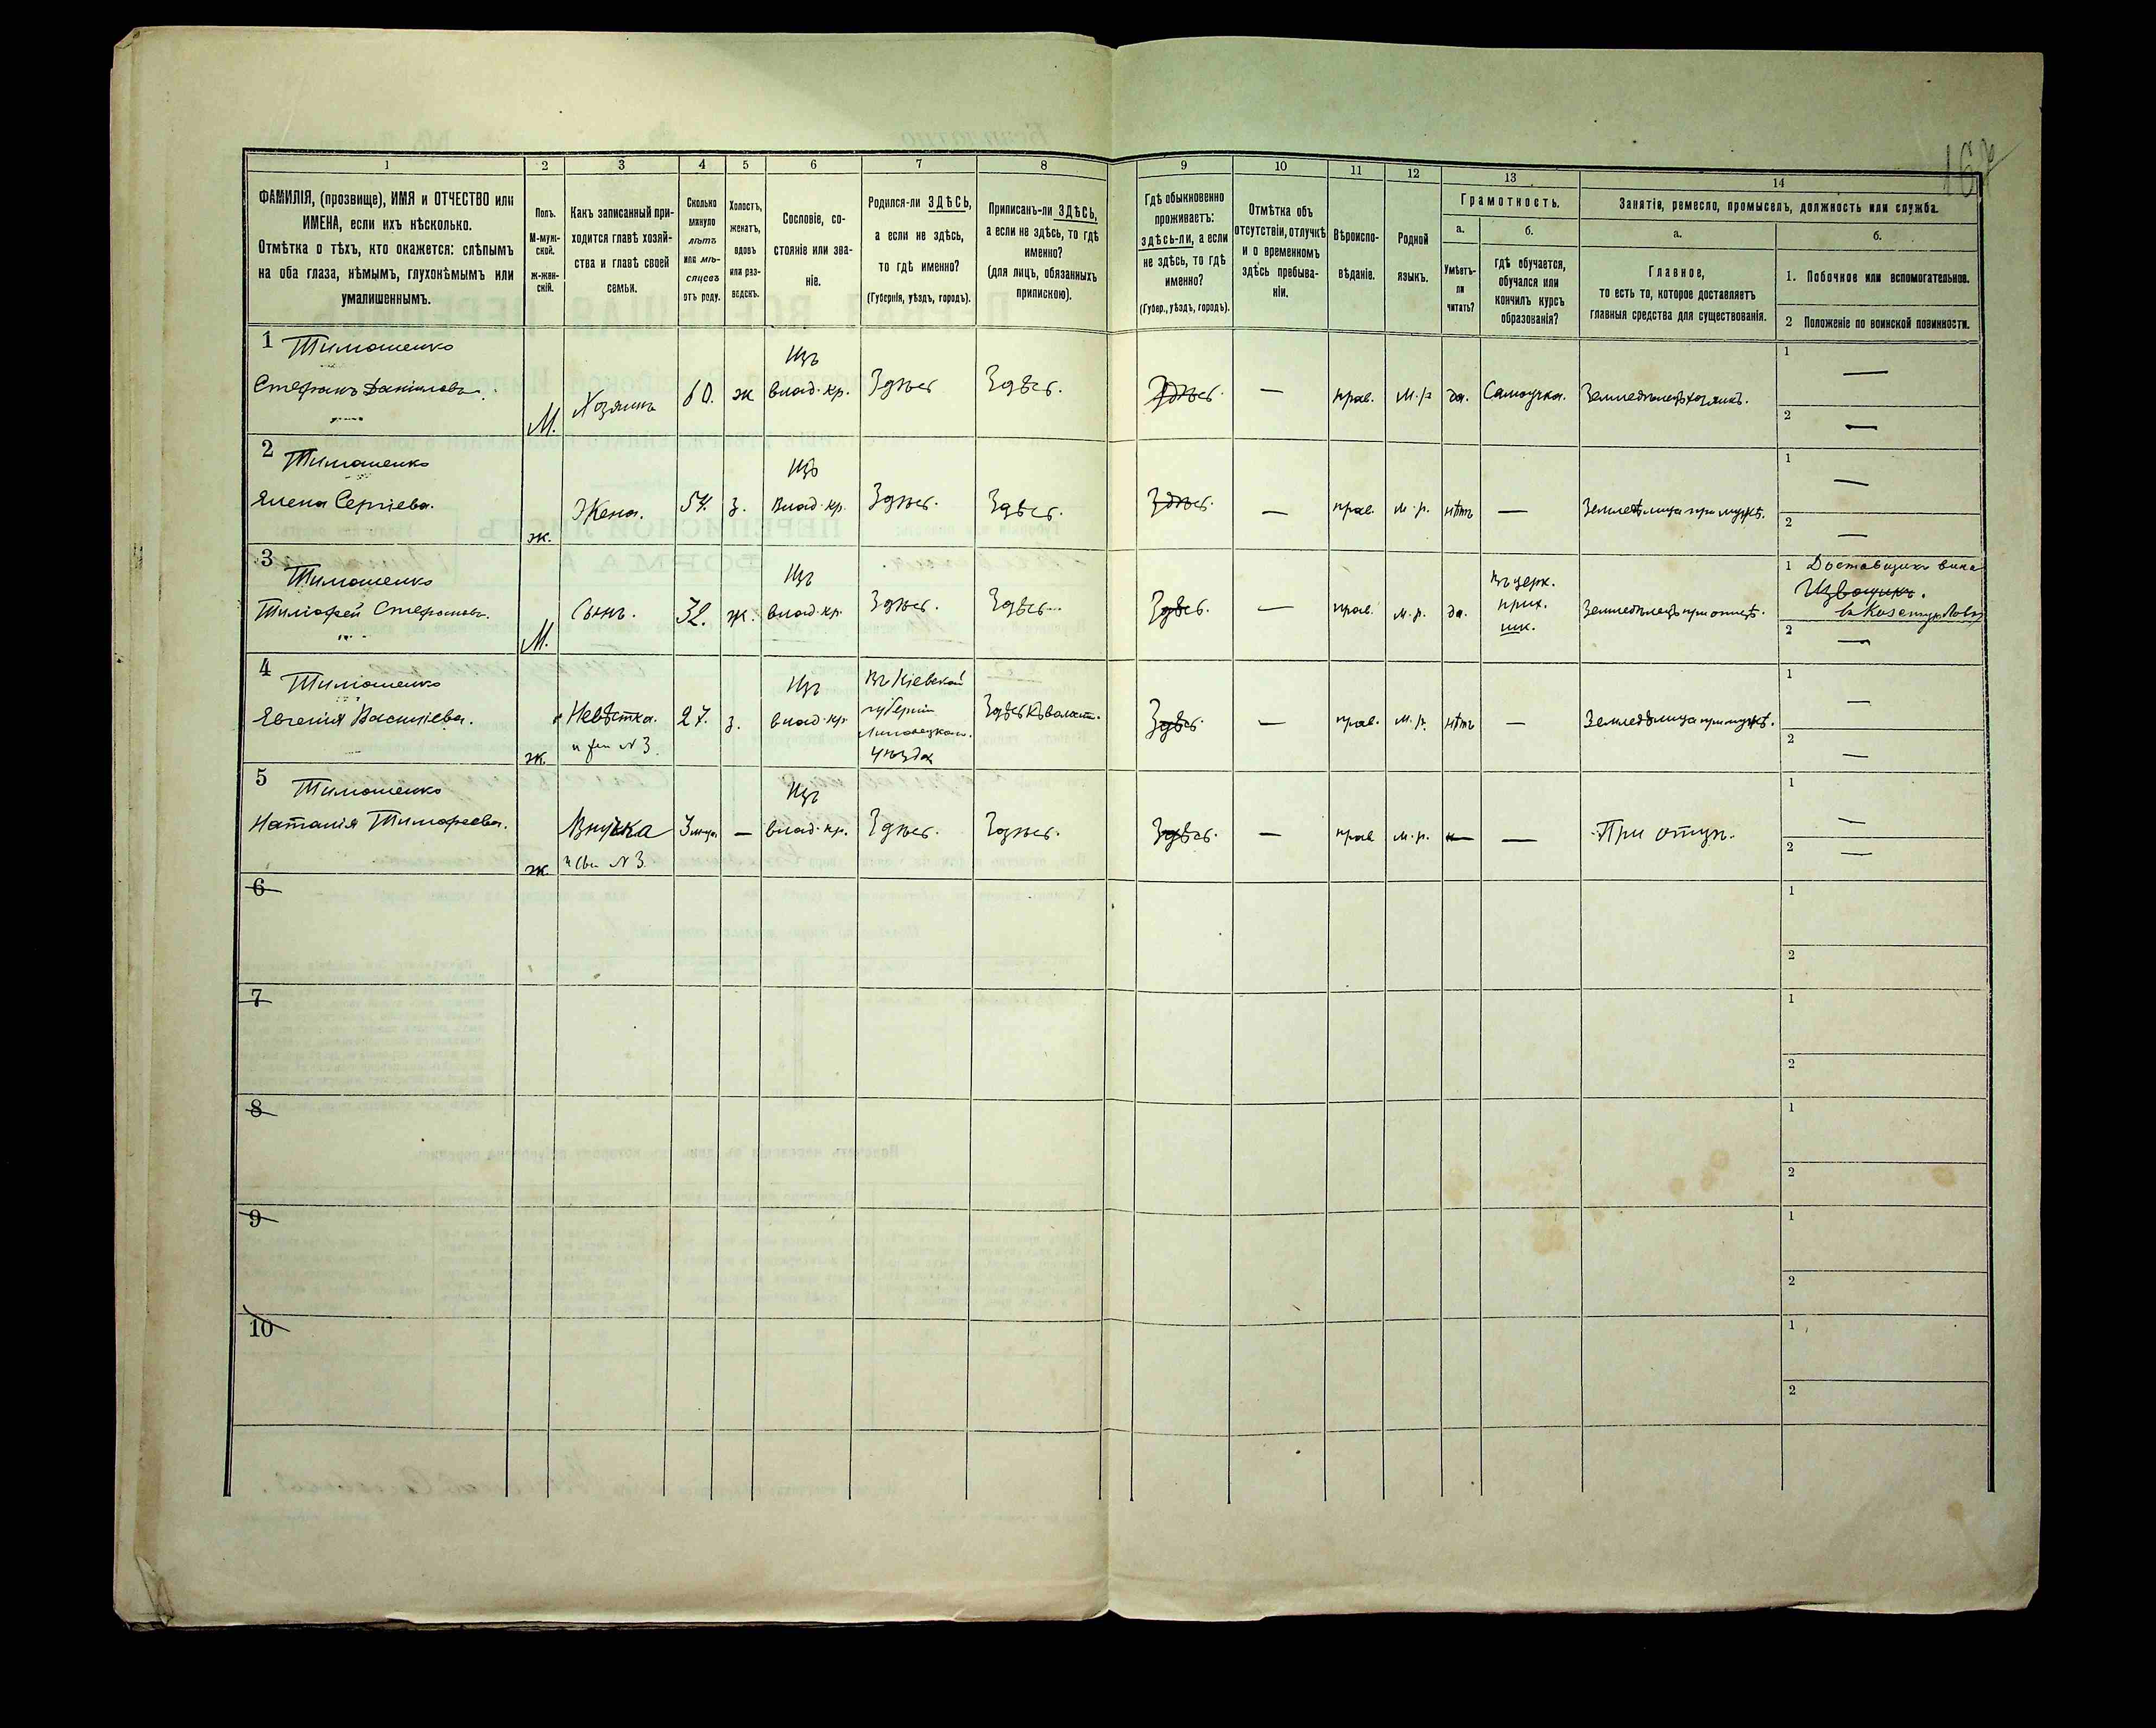 167
1
2
3
4
5
6
7
8
9
10
11
12
13
14
ФАМИЛІЯ, (прозвище), ИМЯ и ОТЧЕСТВО или
ИМЕНА, если ихъ нѣсколько.
Отмѣтка о тѣхъ, кто окажется: слѣпымъ
на оба глаза, нѣмымъ, глухонѣмымъ или
умалишеннымъ.
Полъ.
М-муж-
ской.
ж-жен-
скій.
Какъ записанный при-
ходится главѣ хозяй-
ства и главѣ своей
семьи.
Сколько
минуло
лѣтъ
или мѣ-
сяцевъ
отъ роду.
Холостъ,
женатъ,
вдовъ
или раз-
веденъ.
Сословіе, со-
стояніе или зва-
ніе.
Родился-ли ЗДѢСЬ,
а если не здѣсь,
то гдѣ именно?
(Губернія, уѣздъ, городъ).
Приписанъ-ли ЗДѢСЬ,
а если не здѣсь, то гдѣ
именно?
(для лицъ, обязанныхъ
припискою).
Гдѣ обыкновенно
проживаетъ:
здѣсь-ли, а если
не здѣсь, то гдѣ
именно?
(Губер., уѣздъ, городъ).
Отмѣтка объ
отсутствіи, отлучкѣ
и о временномъ
здѣсь пребыва-
ніи.
Вѣроиспо-
вѣданіе.
Родной
языкъ.
Грамотность.
а.
Умѣетъ-
ли
читать?
б.
гдѣ обучается,
обучался или
кончилъ курсъ
образованія?
Занятія, ремесло, промыселъ, должность или служба.
а.
Главное,
то есть то, которое доставляетъ
главныя средства для существованія.
б.
1. Побочное или вспомогательное.
2 Положеніе по воинской повинности.
1 Тимошенко
Стефанъ Даніиловъ.
М.
Хозяинъ
60.
ж
Изъ
влад. кр.
Здѣсь
Здѣсь.
Здѣсь.
—
прав.
м. р
да.
Самоучка.
Земледѣлецъ хозяинъ.
1 —
2 —
2 Тимошенко
Елена Сергіева.
ж.
Жена.
54.
з.
Изъ
влад. кр.
Здѣсь.
Здѣсь.
Здѣсь.
—
прав.
м. р.
нѣтъ
—
Земледѣлица при мужѣ.
1 —
2 —
3 Тимошенко
Тимофей Стефановъ.
М.
Сынъ.
32.
ж.
Изъ
влад. кр.
Здѣсь.
Здѣсь.
Здѣсь.
—
прав.
м. р.
да.
въ церк.
прих.
шк.
Земледѣлецъ при отцѣ.
1 Доставщикъ вина
Извощикъ.
2 —
4 Тимошенко
Евгенія Василіева.
ж.
Невѣстка.
и жен № 3
27.
з.
Изъ
влад. кр
Въ Кіевской
губерніи
Липовецкого.
уѣзда
Здѣсь къ волости.
Здѣсь.
—
прав.
м. р.
нѣтъ
—
Земледѣлица при мужѣ.
1 —
2 —
5 Тимошенко
Наталія Тимофеева.
ж.
Внучка
№ 3.
—
Изъ
влад. кр.
Здѣсь.
Здѣсь.
Здѣсь.
—
прав
м. р.
—
При отцѣ.
1 —
2 —
6
1
2
7
1
2
8
1
2
9
1
2
10
1
2